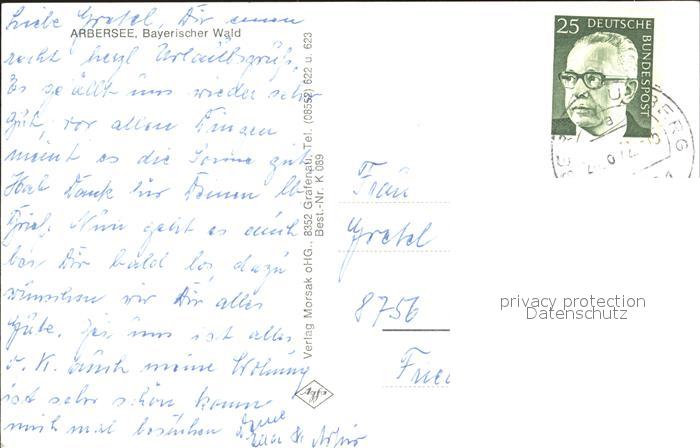 Liebe Gretel, Dir einen
ARBERSEE, Bayerischer Wald
recht herzl. Urlaubsgruß,
Es gefällt uns wieder sehr
gut, vor allen Dingen
meint es die Sonne gut.
Hab Dank für Deinen lb.
Brief. Nun geht es auch
bei Dir bald los, dazu
wünschen wir Dir alles
Gute. Bei uns ist alles
o. K. auch meine Wohnung
ist sehr schön komm
mich mal besuchen
Verlag Morsak oHG., 8352 Grafenau, Tel. (08552) 622 u. 623
Best.-Nr. K 089
25 DEUTSCHE
BUNDESPOST
Frau
Gretel
8756
privacy protection
Datenschutz